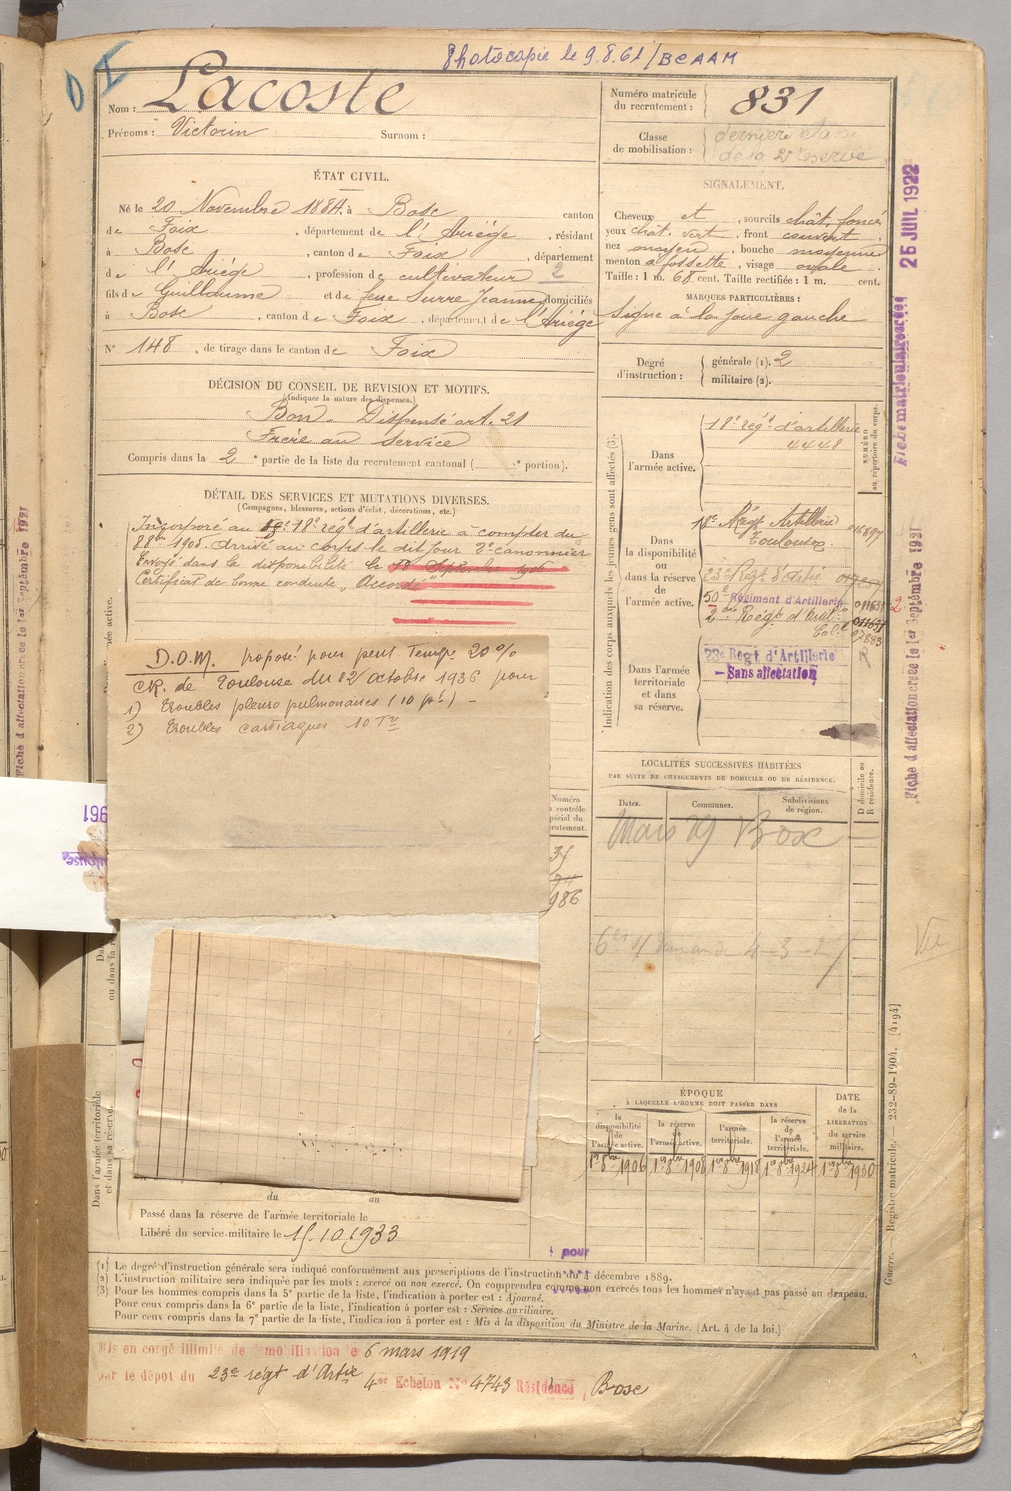 Photocopie le 9.8.61/BCAAM
Nom : Lacoste
Prénoms : Victorin Surnom :
Numéro matricule du recrutement : 831
Classe de mobilisation : dernière classe de la 2e réserve
ÉTAT CIVIL.
Né le 20 Novembre 1884, à Bosc canton
de Foix, département de l'Ariège, résidant
à Bosc, canton de Foix, département
de l'Ariège, profession de cultivateur 2
fils de Guillaume et de feue Surre Jeanne, domiciliés
à Bosc, canton de Foix, département de l'Ariège
N° 148, de tirage dans le canton de Foix
SIGNALEMENT.
Cheveux et, sourcils chât. foncé
yeux chât. vert, front couvert,
nez moyen, bouche moyenne
menton à fossette, visage ovale.
Taille : 1 m. 68 cent. Taille rectifiée : 1 m. cent.
MARQUES PARTICULIÈRES :
Signe à la joue gauche
Degré d'instruction :
générale (1). 2
militaire (2).
DÉCISION DU CONSEIL DE REVISION ET MOTIFS.
(Indiquer la nature des dispenses.)
Bon. Dispensé art. 21
Frère au service
Compris dans la 2e partie de la liste du recrutement cantonal ( e portion).
DÉTAIL DES SERVICES ET MUTATIONS DIVERSES.
(Campagnes, blessures, actions d'éclat, décorations, etc.)
Incorporé au 18e rég. d'artillerie à compter du
8bre 1905. Arrivé au corps le dit jour 2e canonnier
Envoyé dans la disponibilité le 18 Septembre 1906
Certificat de bonne conduite "Accordé"
D.O.M. proposé pour pent. temp. 20 %
CR. de Toulouse du 02/octobre 1936 pour
1) troubles pleuro pulmonaires (10 p%)
2) troubles cardiaques 10
Indication des corps auxquels les jeunes gens sont affectés (3).
Dans l'armée active.
18e rég. d'artillerie
4448
NUMÉRO au répertoire du corps.
Dans la disponibilité ou dans la réserve de l'armée active.
18e Régt Artillerie
Toulouse
23e Régt d'Artie
50e Régiment d'Artillerie
2 Régt d'Artie Col.
Dans l'armée territoriale et dans sa réserve.
23e Régt d'Artillerie
- Sans affectation
R
LOCALITÉS SUCCESSIVES HABITÉES
PAR SUITE DE CHANGEMENTS DE DOMICILE OU DE RÉSIDENCE.
Dates. Communes. Subdivisions de région. D domicile ou R résidence.
Mars 29 Bosc
Numéro
contrôle
spécial du
recrutement.
986
Dans l'armée territoriale et dans sa réserve.
ÉPOQUE
À LAQUELLE L'HOMME DOIT PASSER DANS
la disponibilité de l'armée active.
la réserve de l'armée active.
l'armée territoriale.
la réserve de l'armée territoriale.
DATE de la LIBÉRATION du service militaire.
1er 8bre 1906 1er 8bre 1908 1er 8bre 1918 1er 8bre 1924 1er 8bre 1930
du au
Passé dans la réserve de l'armée territoriale le
Libéré du service militaire le 15.10.1933
pour
(1) Le degré d'instruction générale sera indiqué conformément aux prescriptions de l'instruction du 4 décembre 1889.
(2) L'instruction militaire sera indiquée par les mots : exercé ou non exercé. On comprendra comme non exercés tous les hommes n'ayant pas passé au drapeau.
(3) Pour les hommes compris dans la 5e partie de la liste, l'indication à porter est : Ajourné.
Pour ceux compris dans la 6e partie de la liste, l'indication à porter est : Service auxiliaire.
Pour ceux compris dans la 7e partie de la liste, l'indication à porter est : Mis à la disposition du Ministre de la Marine. (Art. 4 de la loi.)
Mis en congé illimité de démobilisation le 6 mars 1919
par le dépot du 23e régt d'Artie 4e Echelon N° 4743 Résidence Bosc
25 JUIL 1922
Fiche matriculaire créée
Fiche d'affectation créée le 1er Septembre 1921
Vu
Guerre. — Registre matricule. — 232-89-1904. [4194]
Fiche d'affectation créée le 1er Septembre 1921
1961